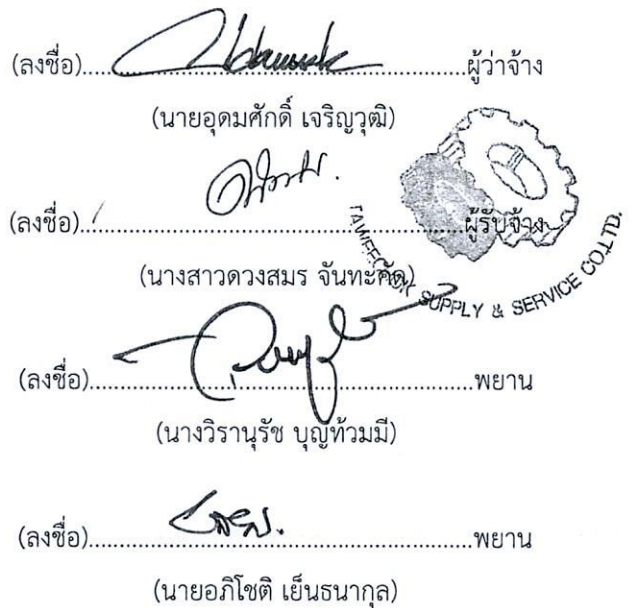 (ลงชื่อ)....................ผู้ว่าจ้าง
(นายอุดมศักดิ์ เจริญวุฒิ)
(ลงชื่อ)....................ผู้รับจ้าง
(นางสาวดวงสมร จันทะคัด)
SUPPLY & SERVICE CO.LTD.
(ลงชื่อ)....................พยาน
(นางวิรานุรัช บุญท้วมมี)
(ลงชื่อ)....................พยาน
(นายอภิโชติ เย็นธนากุล)